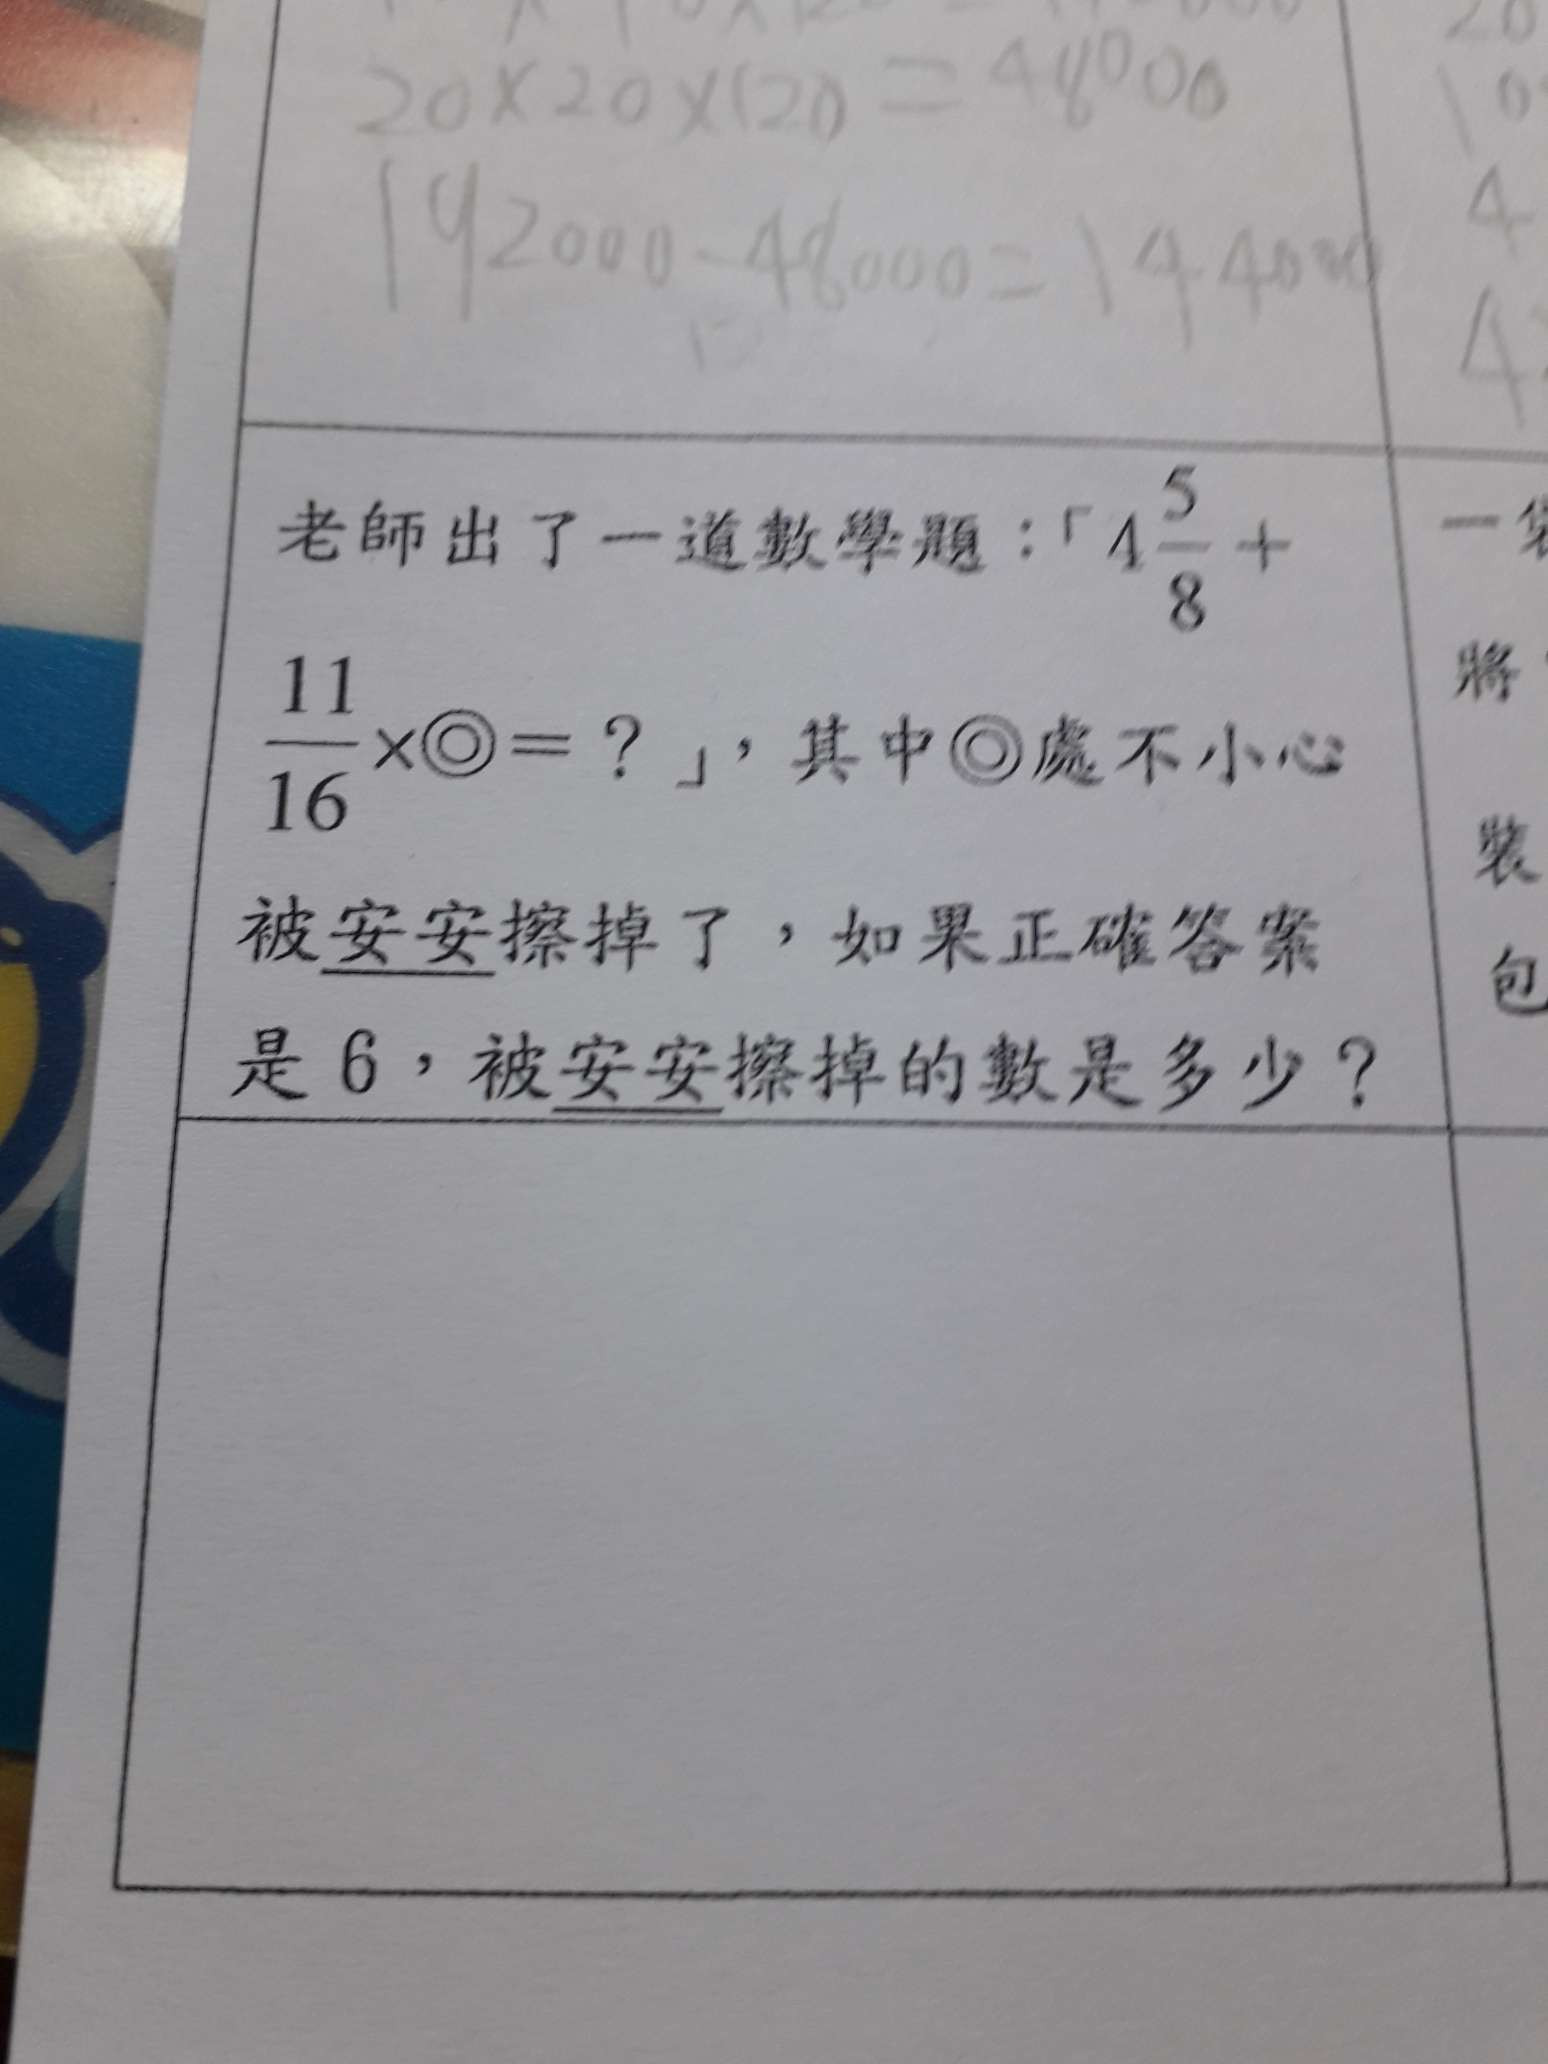 20×20×120=48000
192000-48000=144000
老師出了一道數學題：「4 5/8 +
11/16 ×◎=？」，其中◎處不小心
被安安擦掉了，如果正確答案
是6，被安安擦掉的數是多少？
一袋
將
裝
包